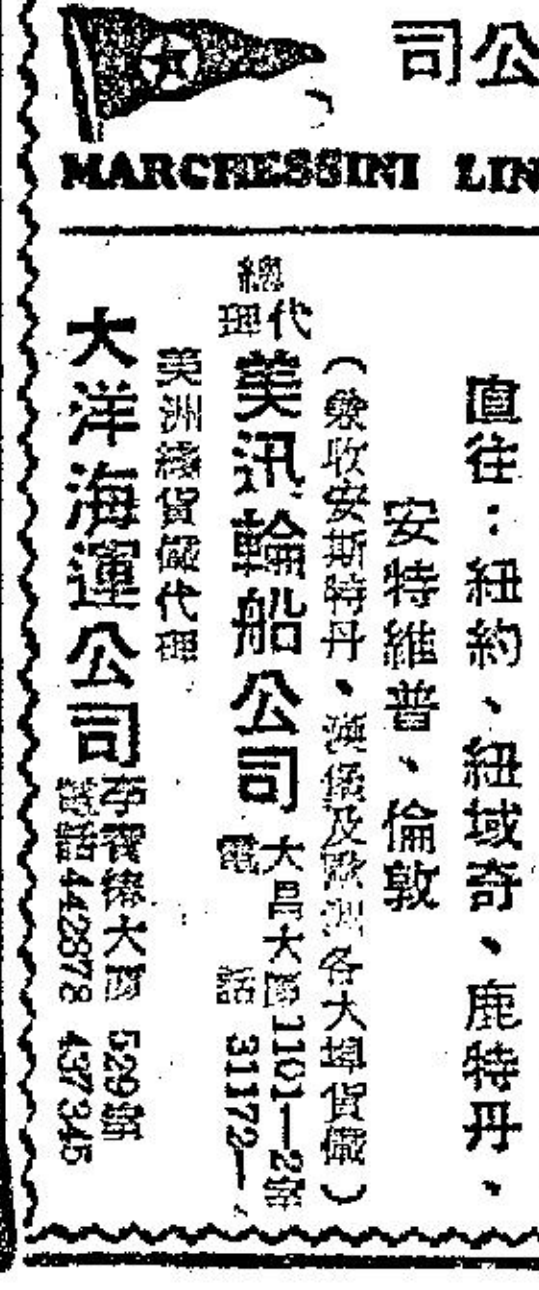 公司
MARCHESSINI LIN
直往：紐約、紐域奇、鹿特丹、
安特維普、倫敦
（兼收安斯特丹、漢堡及歐洲各大埠貨儎）
總代理
美汛輪船公司
大昌大廈1101—2室
電話 31172—
美洲綫貨儎代理
大洋海運公司
李寶椿大廈 529室
電話 442878 437345